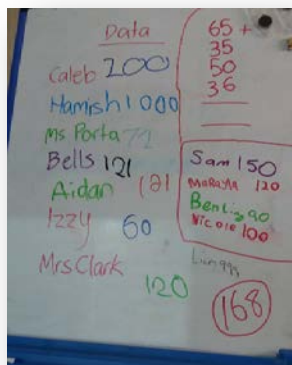 Data
Caleb 200
Hamish 1000
Ms Porta 72
Bells 121
Aidan 121
Izzy 60
Mrs Clark
120
65 +
35
50
36
Sam 150
120
90
Nicole 100
Liam 999
168